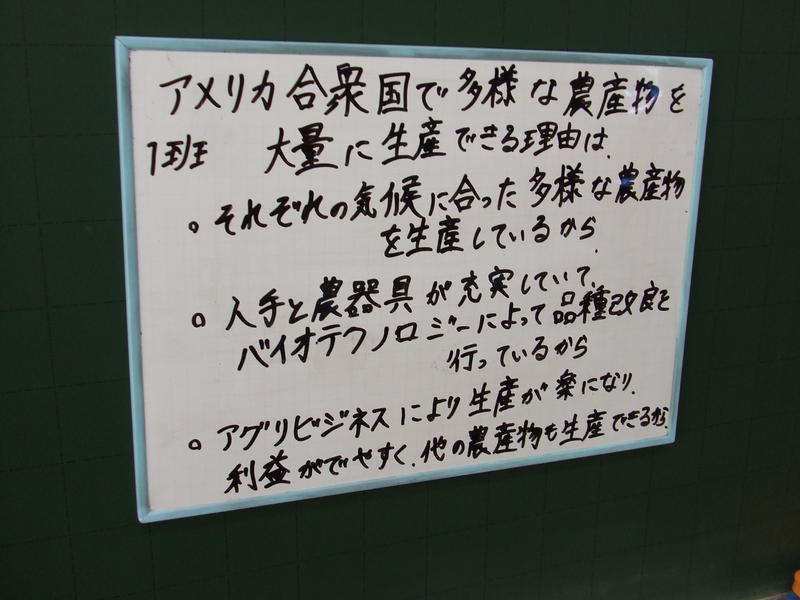 アメリカ合衆国で多様な農産物を
1班 大量に生産できる理由は、
。それぞれの気候に合った多様な農産物
を生産しているから。
。人手と農器具が充実していて、
バイオテクノロジーによって品種改良を
行っているから
。アグリビジネスにより生産が楽になり、
利益がでやすく、他の農産物も生産できるから